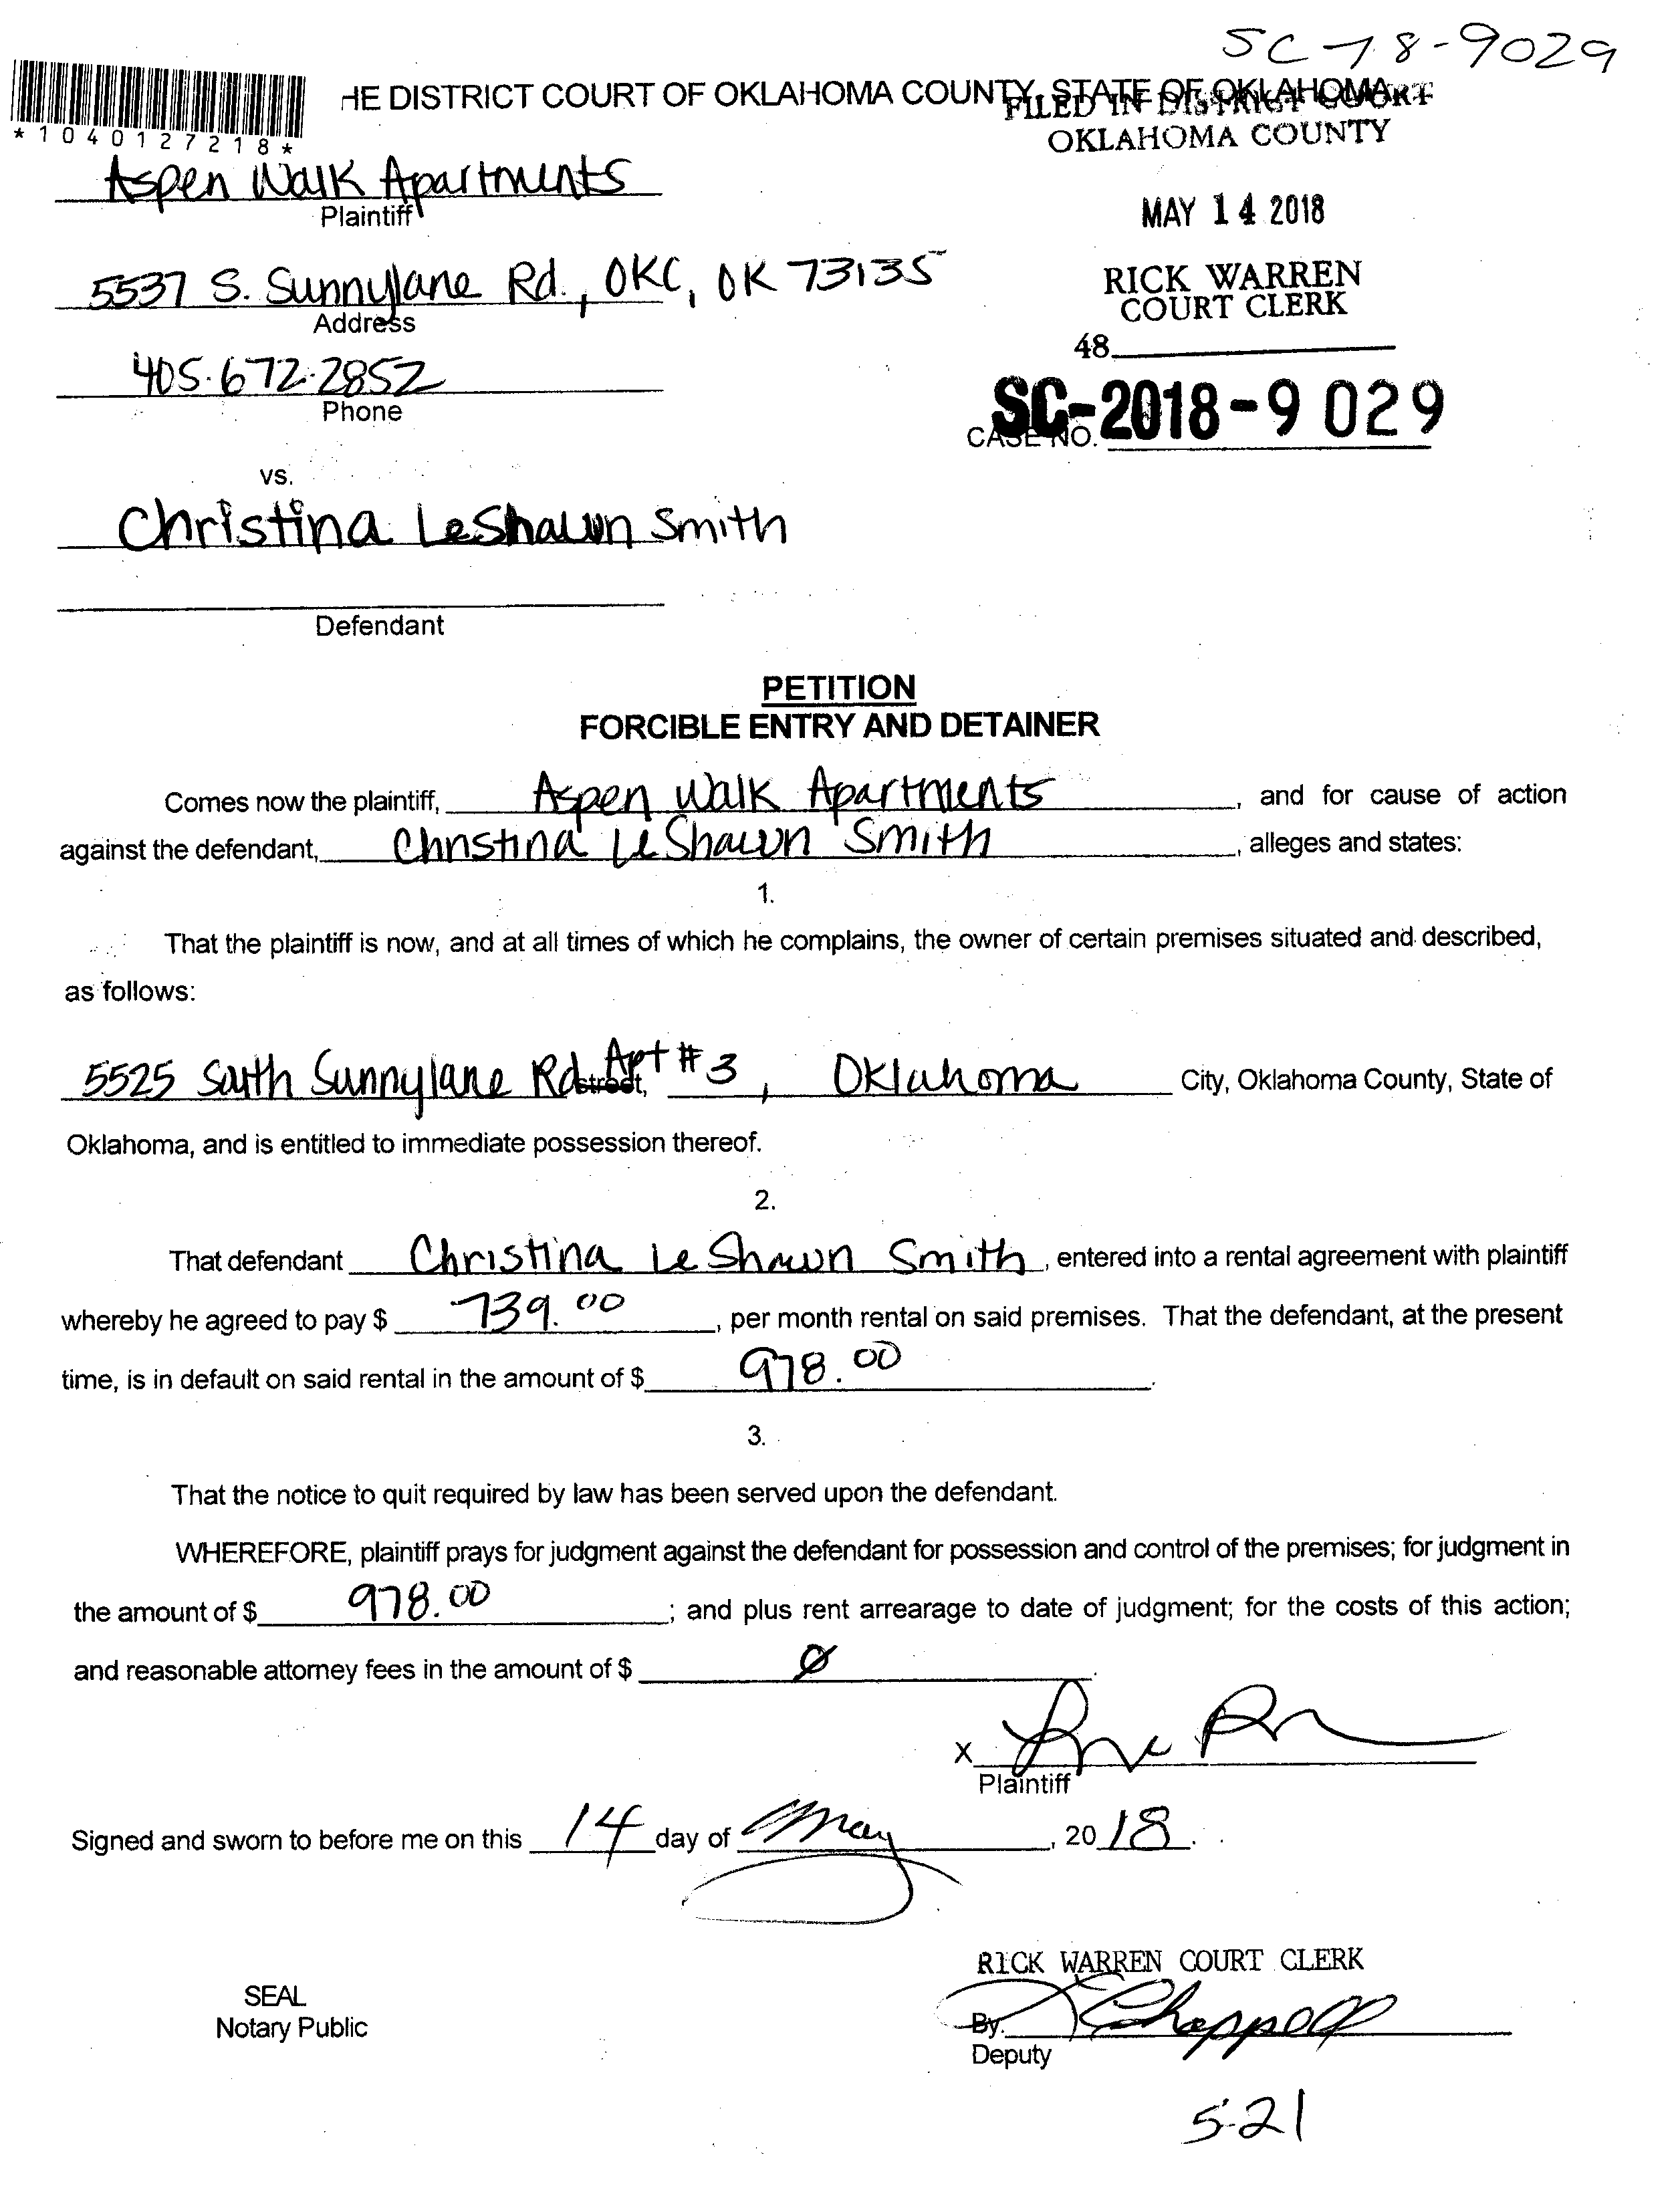 SC-18-9029
HE DISTRICT COURT OF OKLAHOMA COUNTY, STATE OF OKLAHOMA
FILED IN DISTRICT COURT
OKLAHOMA COUNTY
*1040127218*
Aspen Walk Apartments
Plaintiff
MAY 14 2018
5537 S. Sunnylane Rd., OKC, OK 73135
Address
RICK WARREN
COURT CLERK
48
405.672.2852
Phone
SC-2018-9029
CASE NO.
vs.
Christina LeShawn Smith
Defendant
PETITION
FORCIBLE ENTRY AND DETAINER
Comes now the plaintiff, Aspen Walk Apartments, and for cause of action
against the defendant, Christina LeShawn Smith, alleges and states:
1.
That the plaintiff is now, and at all times of which he complains, the owner of certain premises situated and described,
as follows:
5525 South Sunnylane Rd street, Apt #3, Oklahoma City, Oklahoma County, State of
Oklahoma, and is entitled to immediate possession thereof.
2.
That defendant Christina LeShawn Smith, entered into a rental agreement with plaintiff
whereby he agreed to pay $ 739.00, per month rental on said premises. That the defendant, at the present
time, is in default on said rental in the amount of $ 978.00.
3.
That the notice to quit required by law has been served upon the defendant.
WHEREFORE, plaintiff prays for judgment against the defendant for possession and control of the premises; for judgment in
the amount of $ 978.00; and plus rent arrearage to date of judgment; for the costs of this action;
and reasonable attorney fees in the amount of $ Ø.
X
Plaintiff
Signed and sworn to before me on this 14 day of May, 2018.
RICK WARREN COURT CLERK
SEAL
Notary Public
By. Chappell
Deputy
5-21